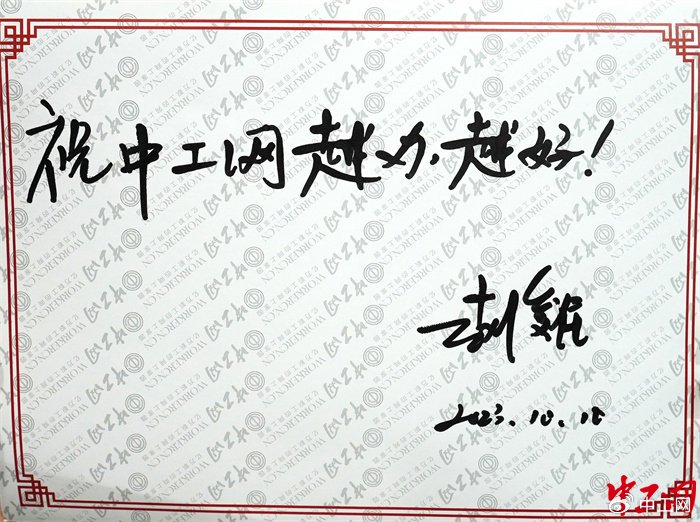 祝中工网越办越好!
2023.10.18
中工网
@中工网